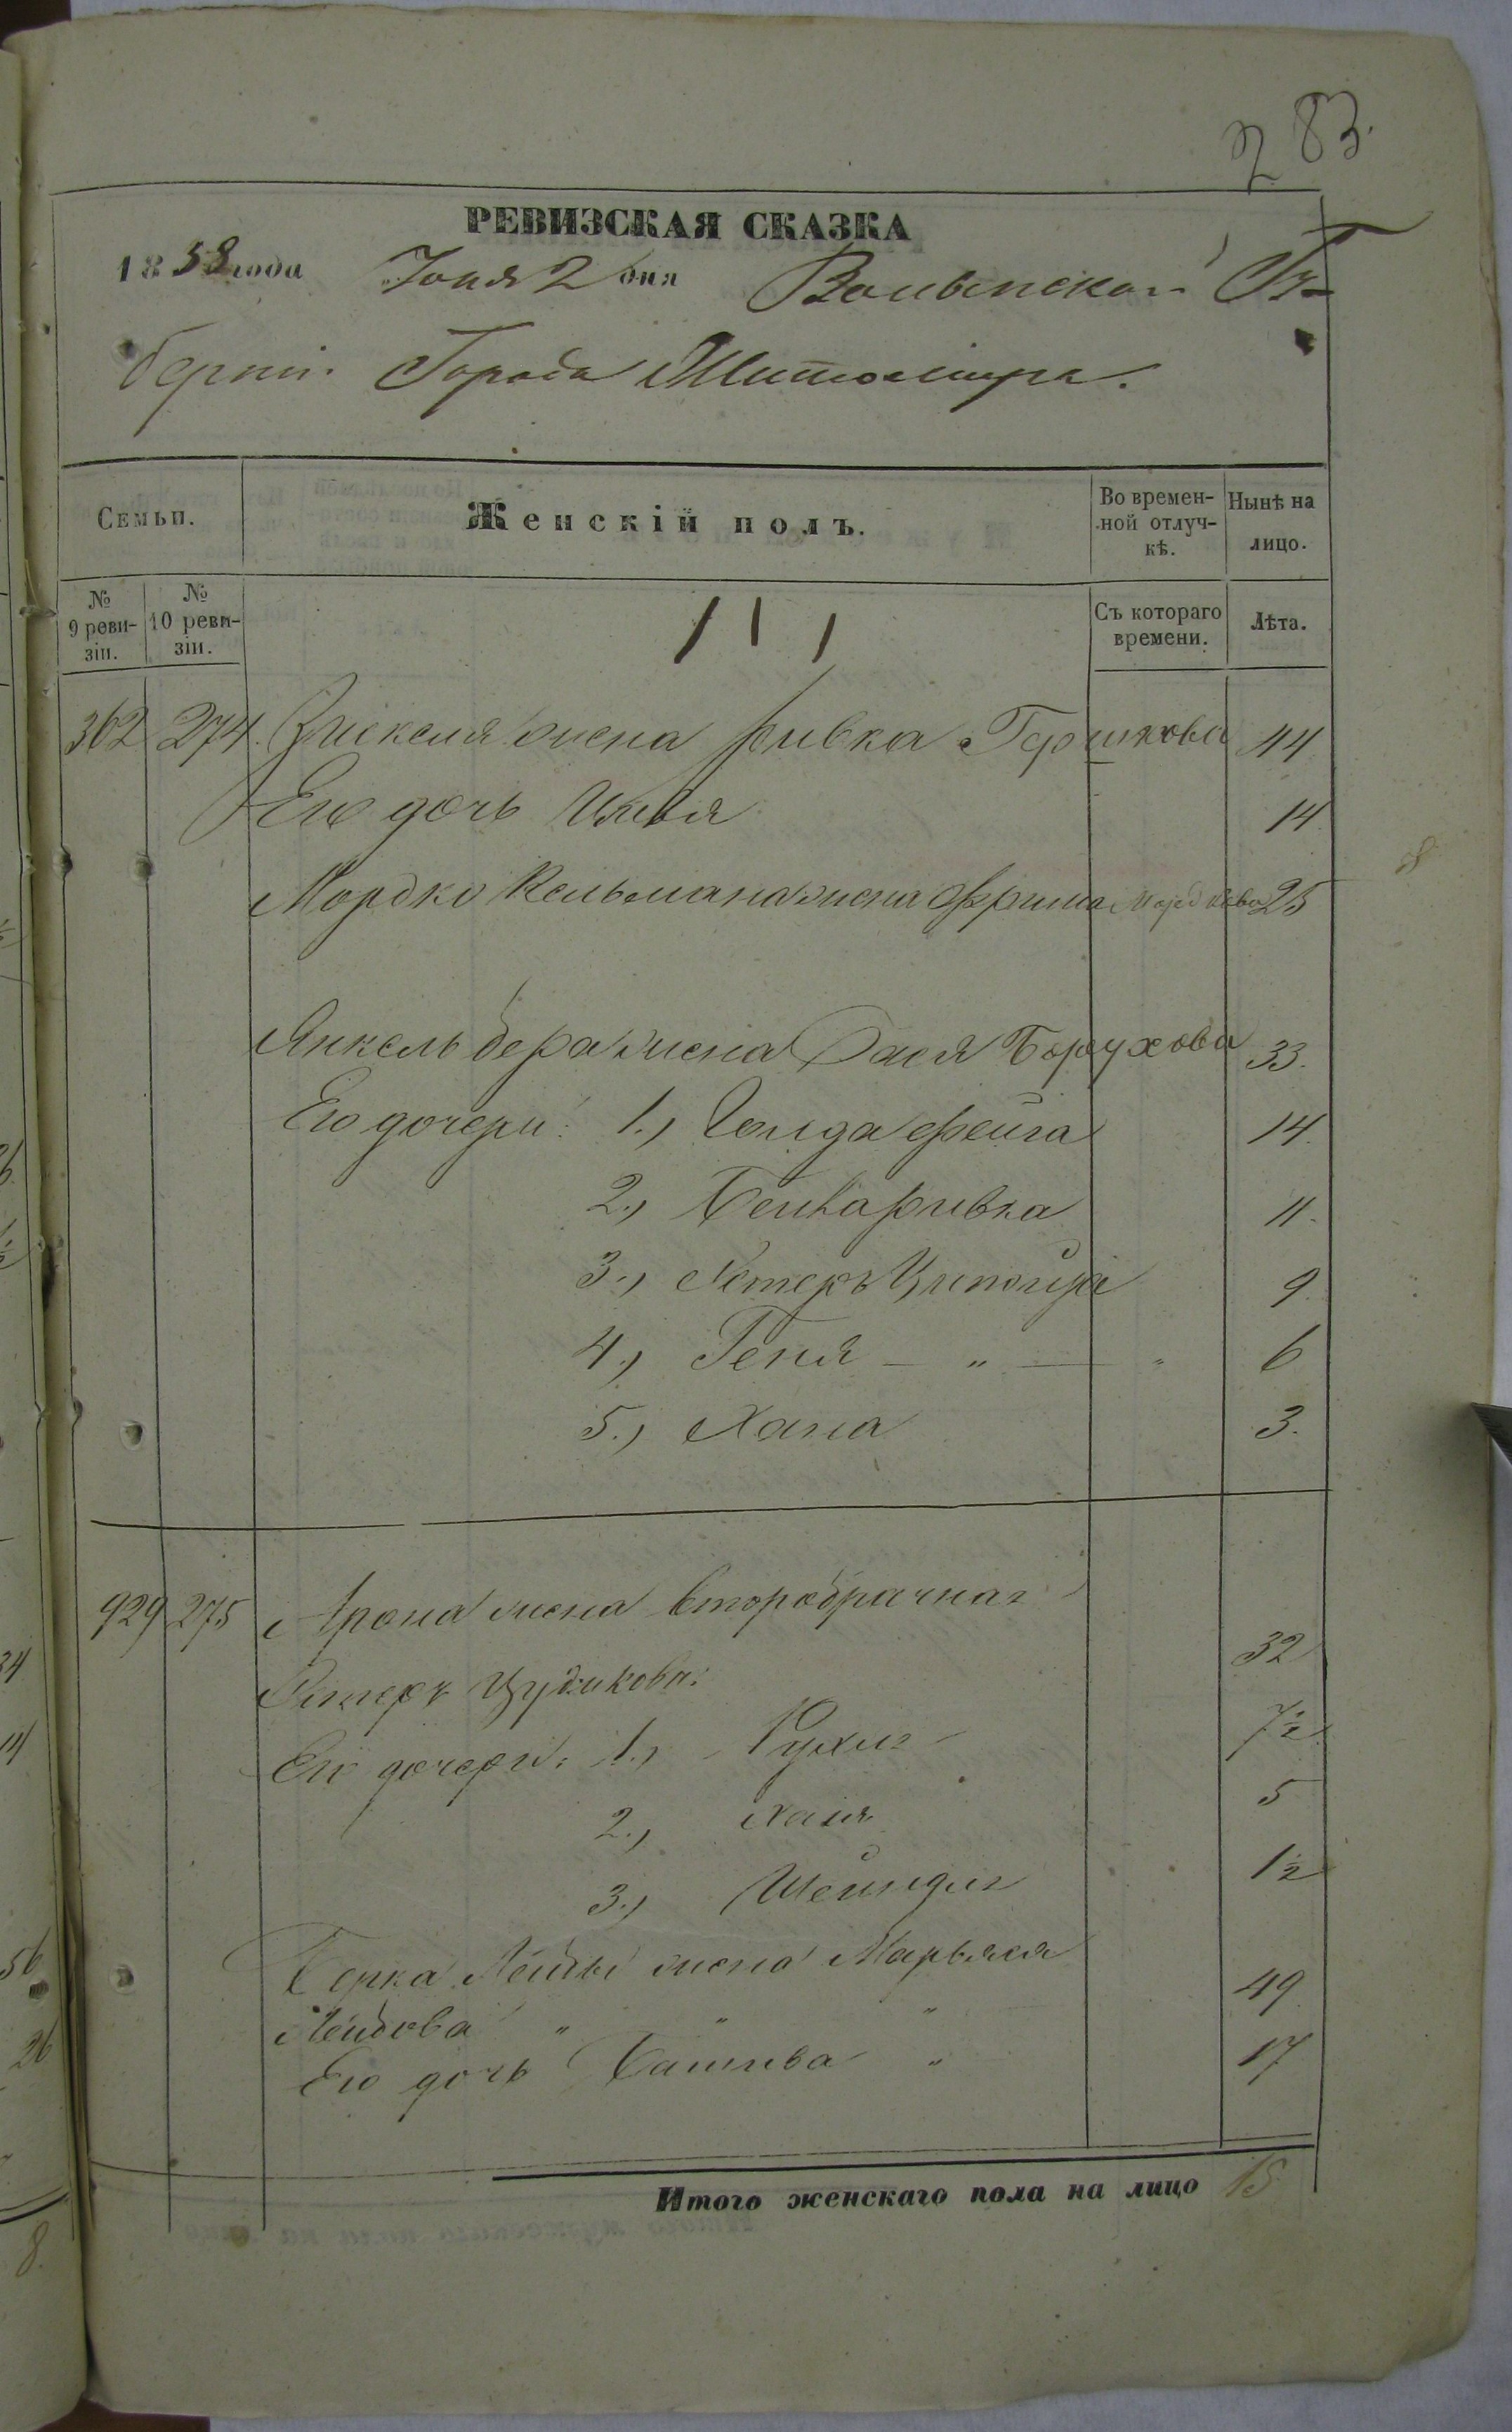 283.
РЕВИЗСКАЯ СКАЗКА
1858 года Іюня 2 дня Волынской Гу-
берніи Города Житоміра.
Семьи.
Женскій полъ.
Во времен-
ной отлуч-
кѣ.
Нынѣ на
лицо.
№
9 реви-
зіи.
№
10 реви-
зіи.
Съ котораго
времени.
Лѣта.
362 274. жена Ривка Гершкова 44
Его дочь 14
Мордко Кельмана жена Фрима Мордкова 25
Янкель Бера жена Бася Борухова 33.
Его дочери: 1., Голда Фейга 14.
2., Бейла Ривка 11.
3., Естеръ Ципойра 9.
4., Геня — „ — „ 6
5., Хана 3.
929 275 Арона жена второбрачная
Естеръ Цудикова: 32
Его дочери: 1., Рухля 7½
2., Хая 5
3., Шейндля 1½
Берка Лейбы жена Марьяся
Лейбова „ „ „ 49.
Его дочь Башева „ 17
Итого женскаго пола на лицо 15
8